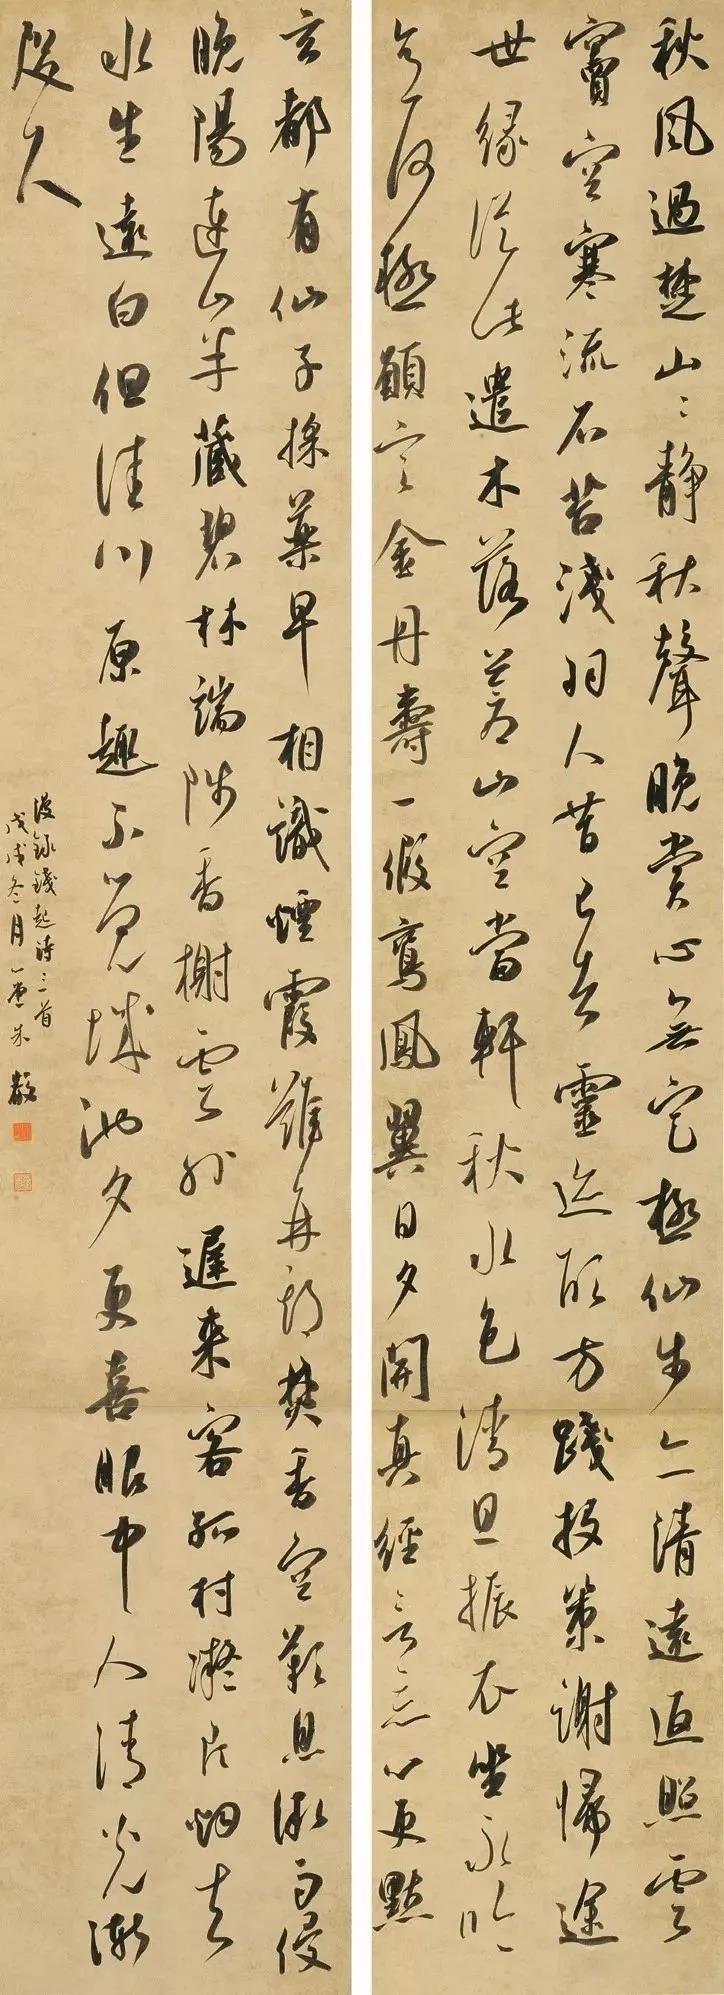 秋風過楚山〻靜秋聲晚賞心無定極仙步亦清遠返照雲
竇空寒流石苔淺羽人昔已去靈迹欣方踐投策謝歸途
世緣從此遣木落蒼山空當軒秋水色清旦振衣坐永吟
何極願言金丹壽一假鸞鳳翼日夕開真經言忘心更默
玄都有仙子採藥早相識煙霞難再期焚香空歎息微雨侵
晚陽連山半藏碧林端陟香榭雲外遲來客孤村凝片烟去
水生遠白但佳川原趣不覺城池夕更喜眼中人清光漸
咫尺
漫錄錢起詩三首
戊戌冬月